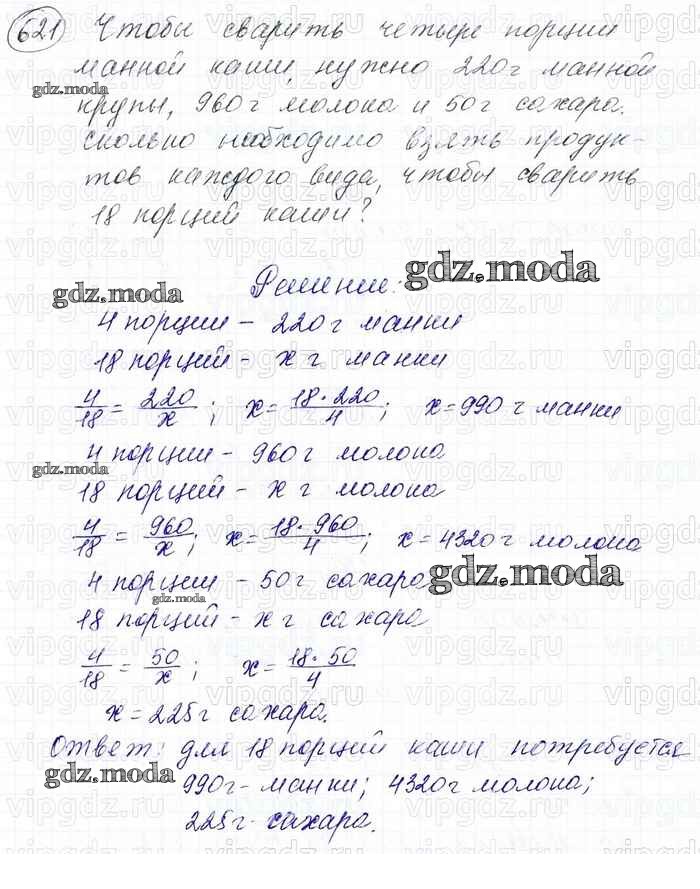 621 Чтобы сварить четыре порции
манной каши, нужно 220г манной
gdz.moda
крупы, 960г молока и 50г сахара.
Сколько необходимо взять продук-
тов каждого вида, чтобы сварить
18 порций каши?
gdz.moda
Решение:
gdz.moda
4 порции - 220г манки
18 порций - x г манки
4/18 = 220/x ; x = 18·220/4 ; x = 990 г манки
4 порции - 960г молока
gdz.moda
18 порций - x г молока
4/18 = 960/x ; x = 18·960/4 ; x = 4320г молока
4 порции - 50г сахара
gdz.moda
gdz.moda
18 порций - x г сахара
4/18 = 50/x ; x = 18·50/4
x = 225г сахара.
Ответ: для 18 порций каши потребуется
gdz.moda
990г - манки; 4320г молока;
225г сахара.